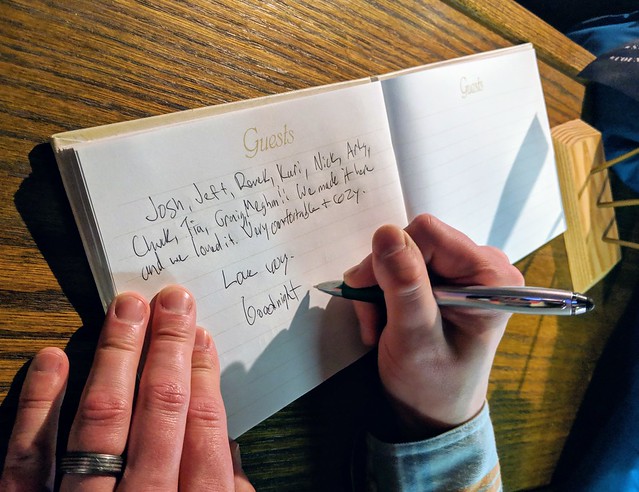 Guests
Josh, Jeff, Derek, Kari, Nick, Arty,
Chuck, Tia, Craig, Meghan!: We made it here
and we loved it. Very comfortable + cozy.
Love you.
Goodnight
Guests